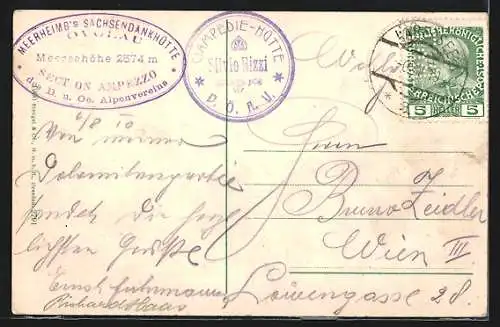 MEERHEIMB'S SACHSENDANKHÜTTE
NUVOLAU
Meereshöhe 2574 m
SECTION AMPEZZO
des D. u. Oe. Alpenvereins
CAMPEDIE-HÜTTE
Silvio Rizzi
D. Ö. A. V.
5 HELLER 5
9/8 10
Von unserer
Dolomitenpartie
sendet die herz
lichsten Grüße
Ernst Fuhrmann
Richard Haas
Herrn
Bruno Zeidler
Wien III
Löwengasse 28.